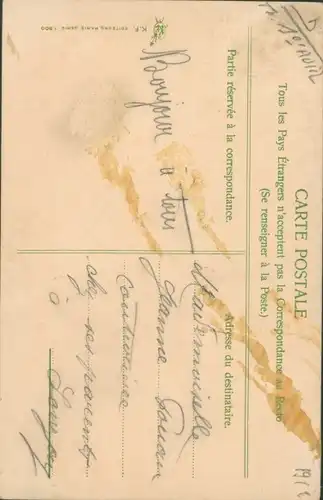 CARTE POSTALE
Tous les Pays Étrangers n'acceptent pas la Correspondance au Recto
(Se renseigner à la Poste.)
Partie réservée à la correspondance.
Adresse du destinataire.
Bonjour
a tous
Mademoiselle
Jeanne
couturière
chez ses parents
à
K. F. EDITEURS, PARIS